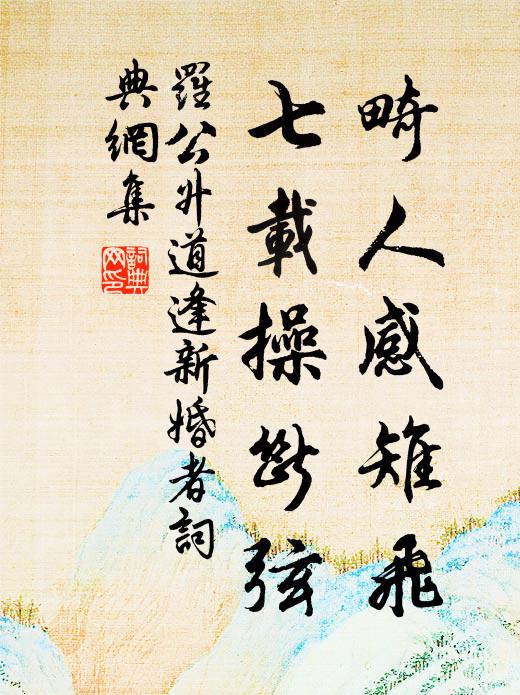 畸人感雉飛
七載操斷弦
羅公升道逢新婚者詞
典網集
詞典網印